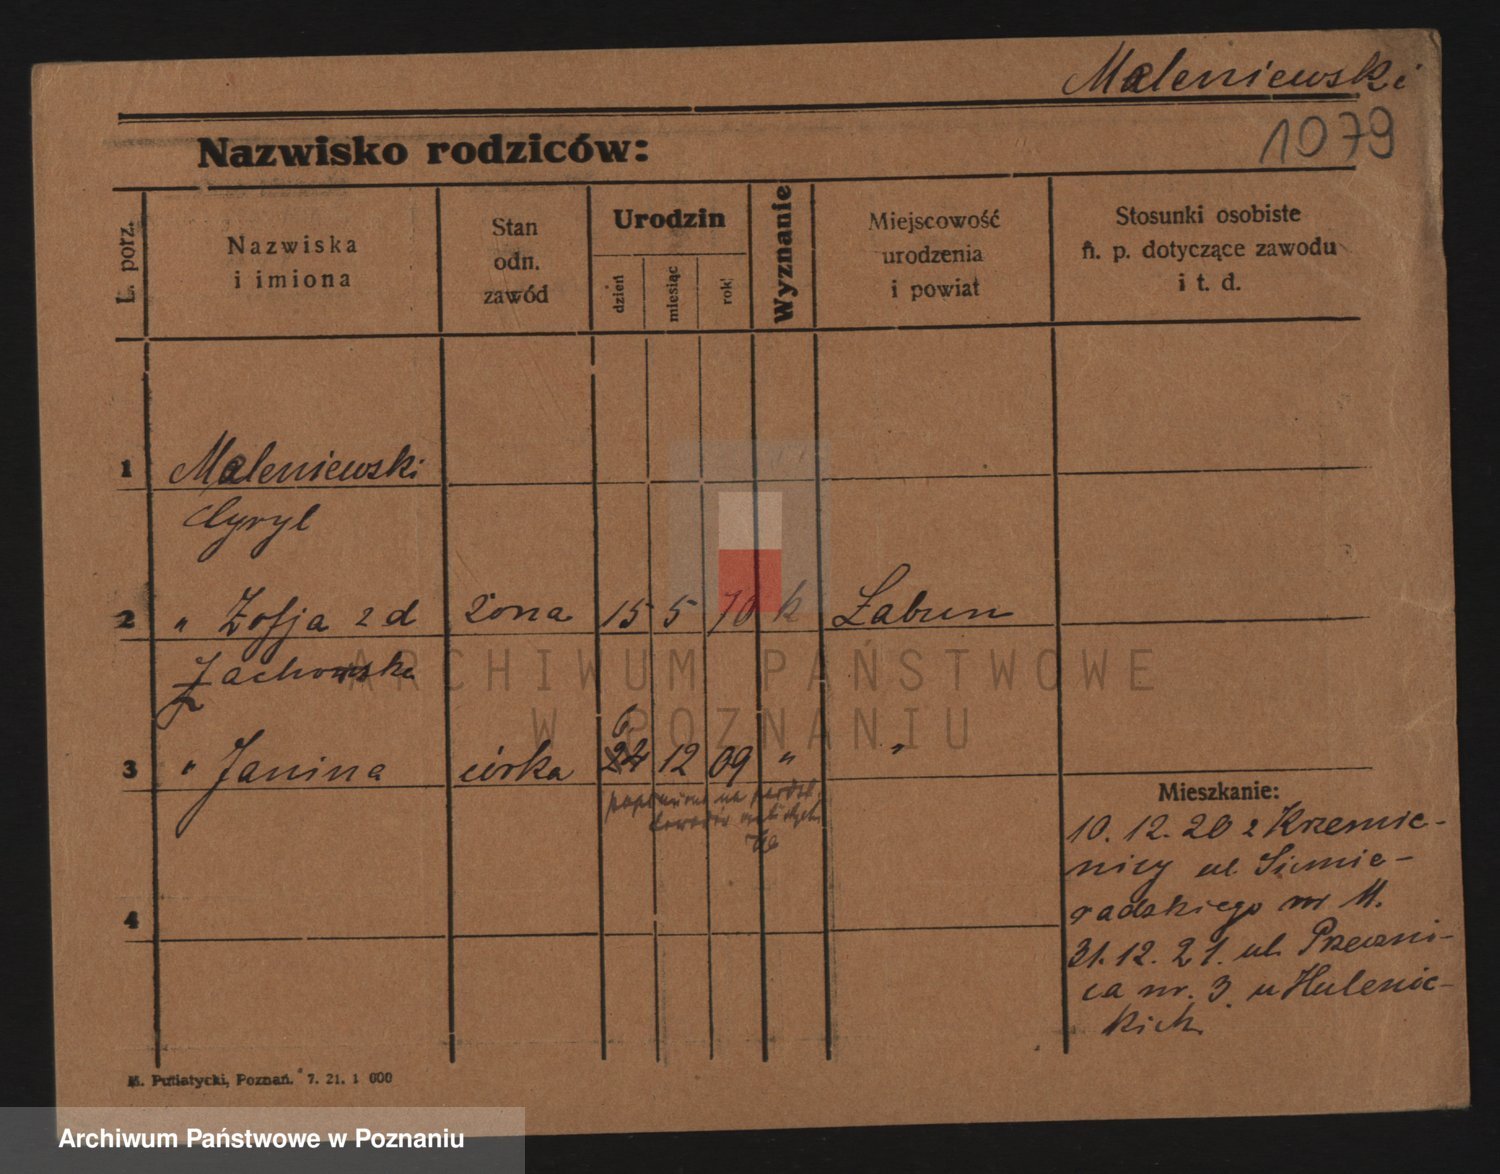 Maleniewski
1079
Nazwisko rodziców:
L. porz.
Nazwiska
i imiona
Stan
odn.
zawód
Urodzin
dzień
miesiąc
rok
Wyznanie
Miejscowość
urodzenia
i powiat
Stosunki osobiste
n. p. dotyczące zawodu
i t. d.
1 Maleniewski
Cyryl
2 " Zofja z d żona 15 5 70 k Łabun
Żachowska
6.
3 " Janina córka 24 12 09 " "
na
4
Mieszkanie:
10. 12. 20 z Krzemie-
nicy ul Siemie-
radzkiego nr 11.
31. 12. 21. ul. Przeczni-
ca nr. 3 u Hulenic-
kich
M. Putiatycki, Poznań. 7. 21. 1 000
ARCHIWUM PAŃSTWOWE
W POZNANIU
Archiwum Państwowe w Poznaniu